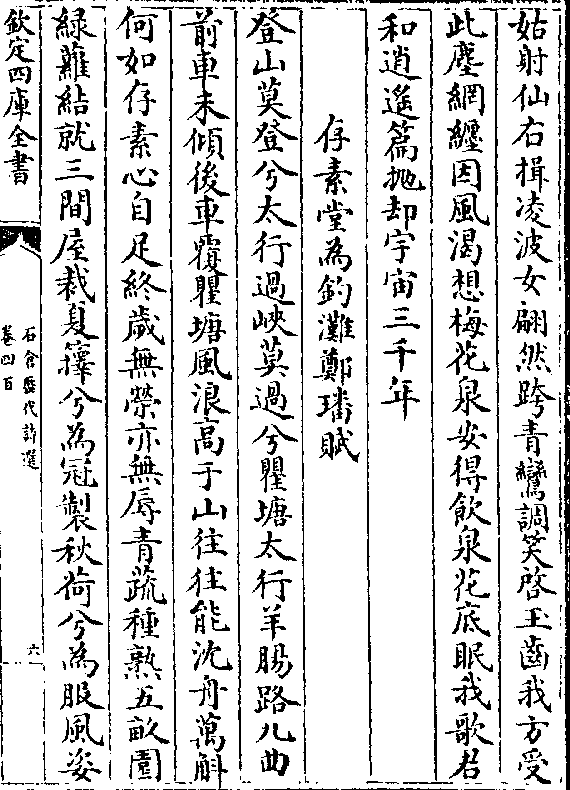 姑射仙右揖凌波女翩然跨青鸞調笑啓玉齒我方受
此塵網纏因風渴想梅花泉安得飲泉花底眠我歌君
和逍遙篇抛却宇宙三千年
存素堂為釣灘鄭璠賦
登山莫登兮太行過峽莫過兮瞿塘太行羊腸路九曲
前車未傾後車覆瞿塘風浪高于山往往能沈舟萬斛
何如存素心自足終歲無榮亦無辱青蔬種熟五畝園
緑蘿結就三間屋裁夏籜兮為冠製秋荷兮為服風姿
欽定四庫全書
石倉歴代詩選
卷四百
六